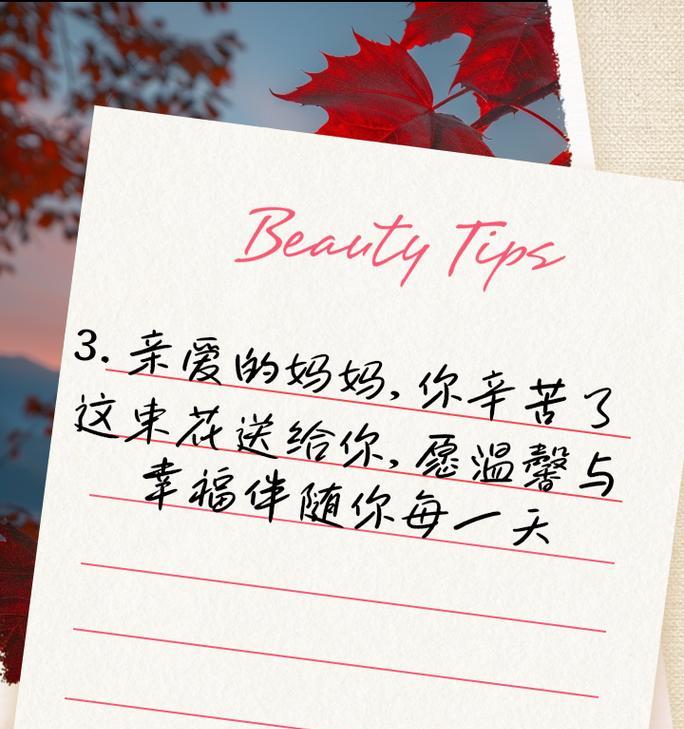 Beauty Tips
3. 亲爱的妈妈,你辛苦了
这束花送给你,愿温馨与
幸福伴随你每一天